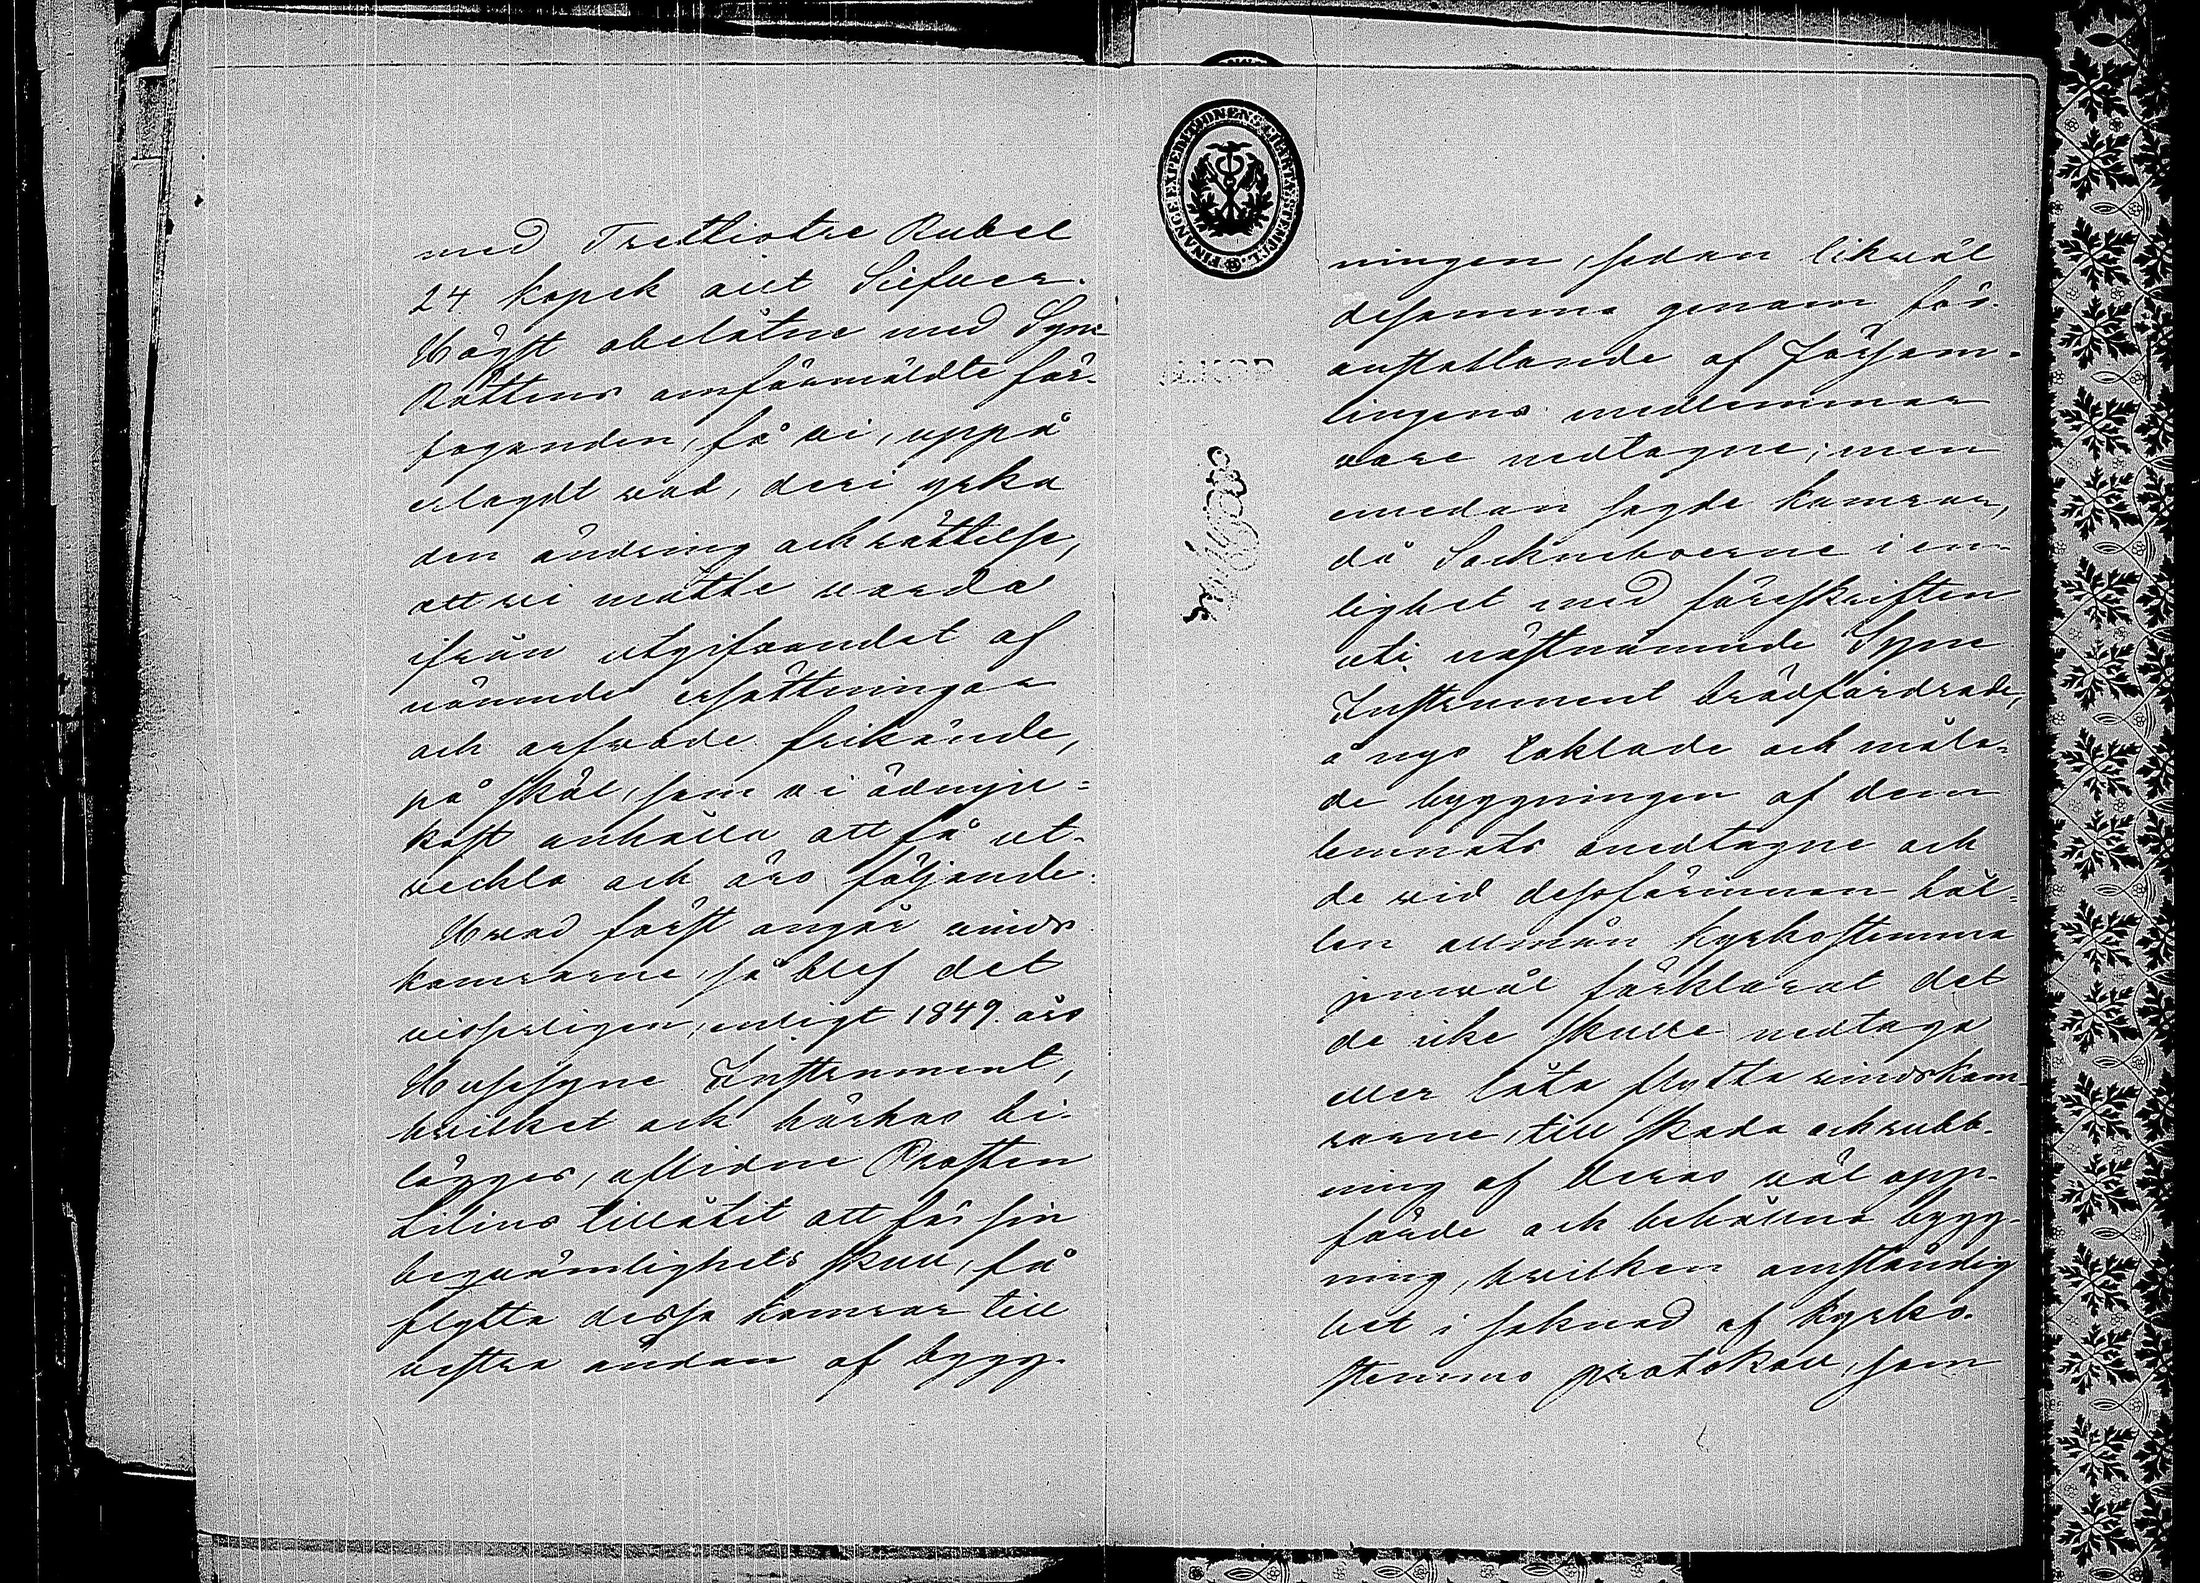 med Trettiotre Rubel
24 kopek allt Silfver.
Högst obelåtne med Syne
Rättens omförmäldte för-
foganden, få vi, uppå
erlagdt vad, deri yrka
den ändring och rättelse,
att vi måtte varda
ifrån utgifvandet af
nämnde ersättningar
och arfvode frikände,
på skäl, som vi ödmju-
kast anhålla att få ut-
veckla och äro följande:
Hvad först angår vinds
kamrarne, så blef det
visserligen, enligt 1849 års
Husesyne Instrument,
hvilket ock härhos bi-
lägges, aflidne Prosten
Lilius tillåtit att för sin
beqvämlighets skull, få
flytta dessa kamrar till
vestra ändan af bygg-
FINANCE EXPEDITIONENS CHARTA STEMPEL
ningen, sedan likväl
desamma genom för-
anstaltande af Försam-
lingens medlemmar
vore nedtagne; men
emedan sagde kamrar,
då Sockneboerne i en-
lighet med föreskriften
uti nästnämnde Syne
Instrument brädfordrade,
å nyo taklade och måla-
de byggningen af dem
lemnats onedtagne och
de vid dessförinnan hål-
len allmän kyrkostemma
jemväl förklarat det
de icke skulle nedtaga
eller låta flytta vindskam-
rarne, till skada och rubb-
ning af deras väl upp-
förde och behållna bygg-
ning, hvilken omständig
het i saknad af kyrko-
stemmo protokoll, som